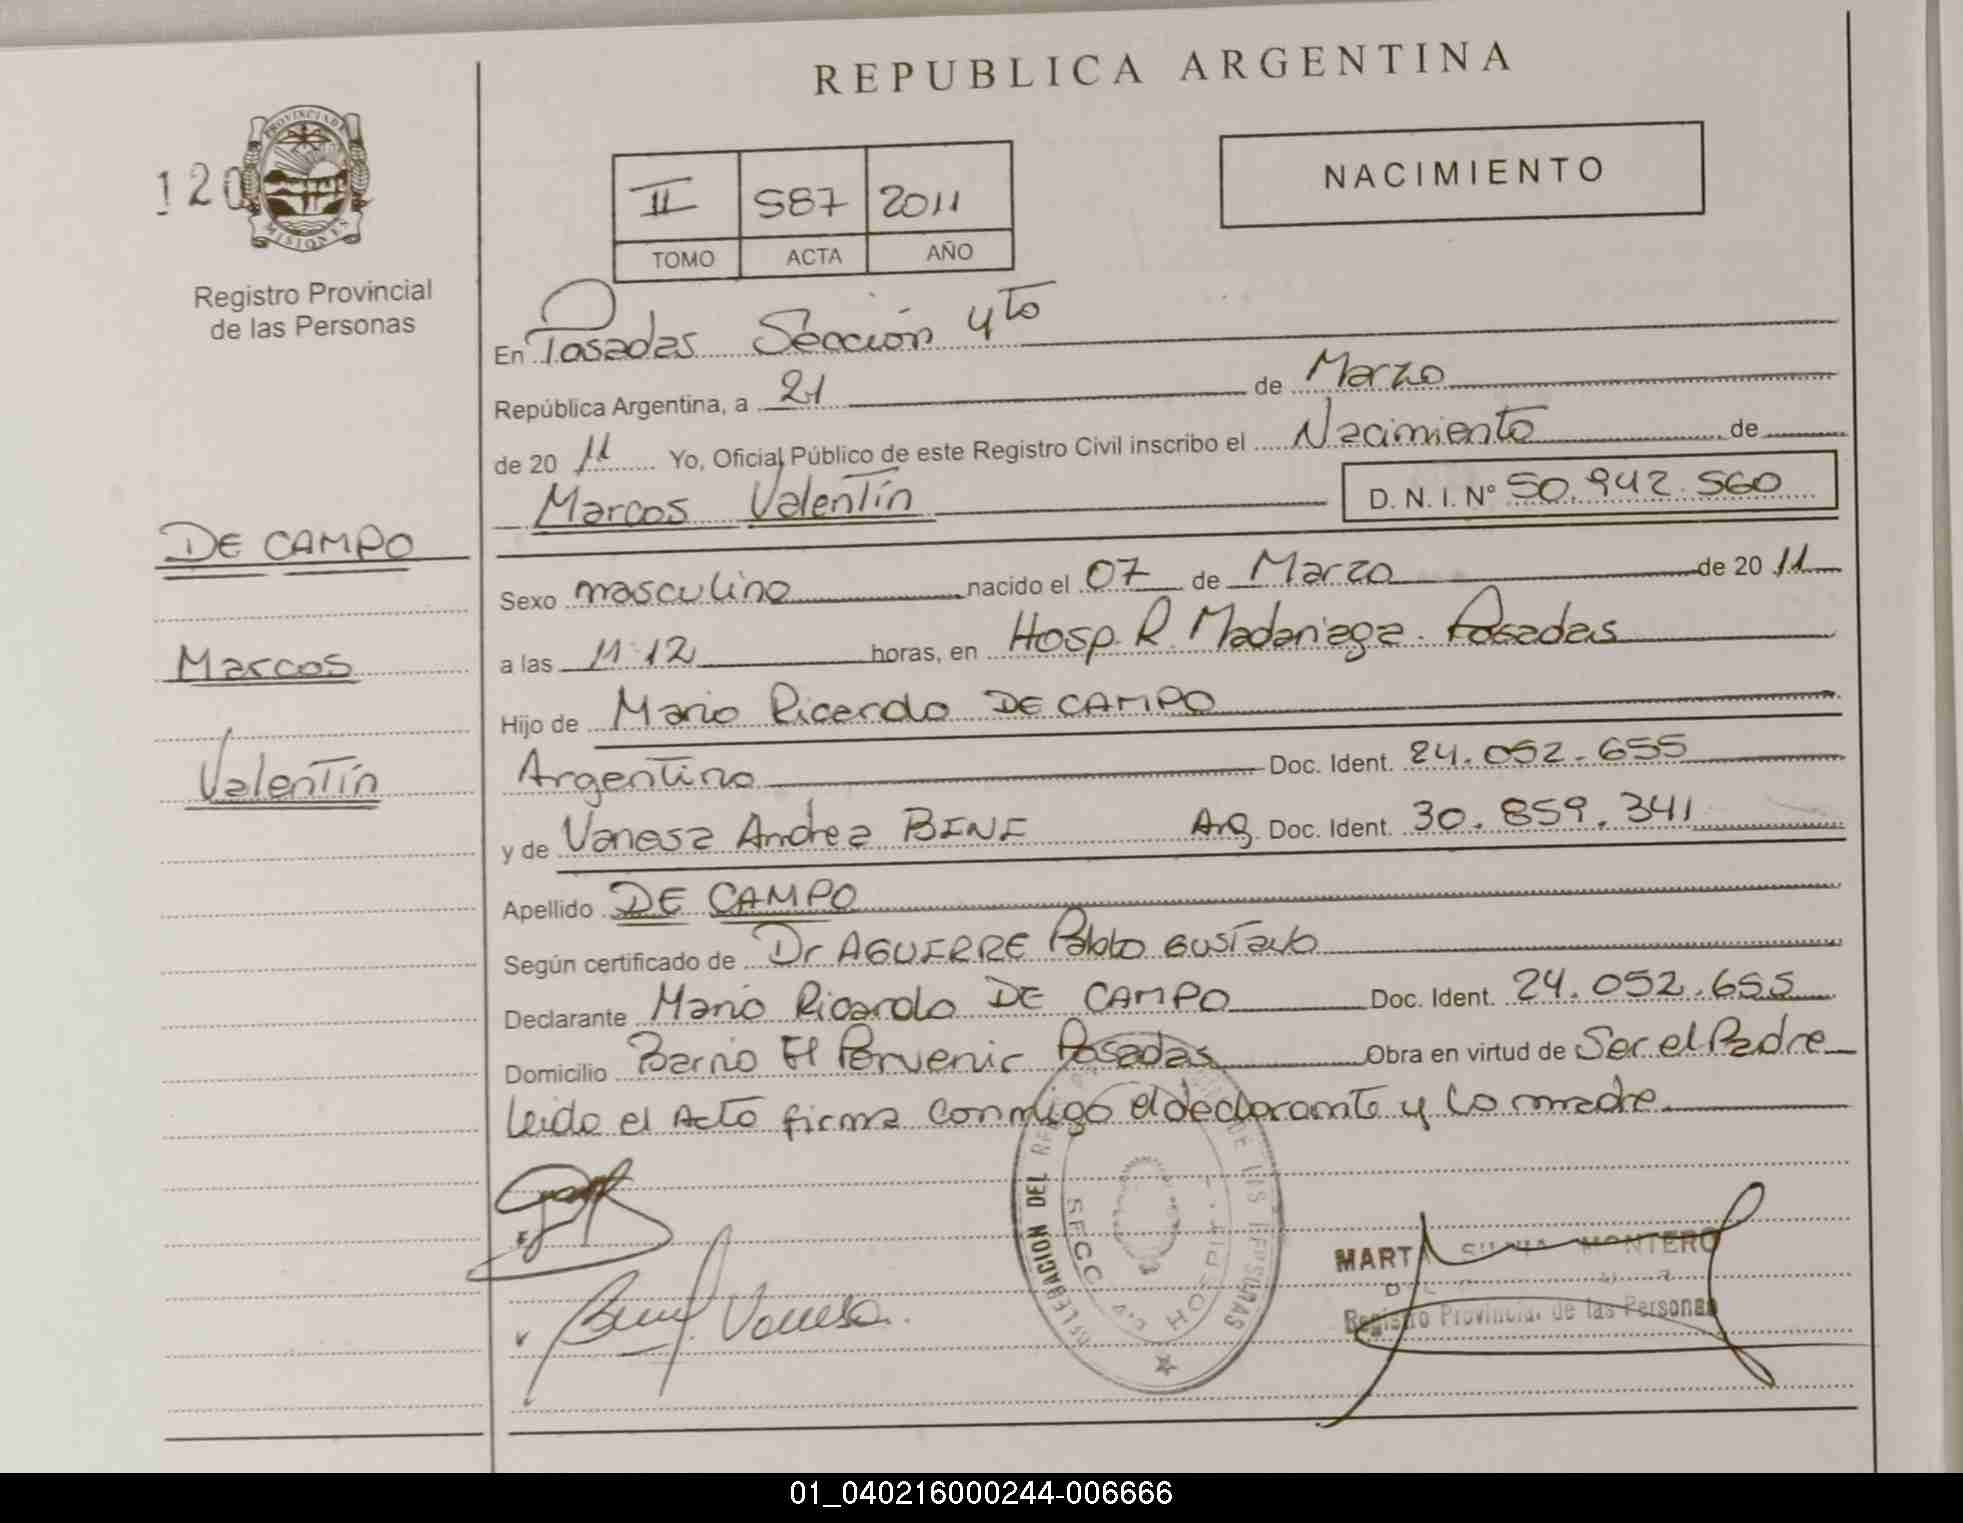 REPUBLICA ARGENTINA
120
PROVINCIA DE
MISIONES
Registro Provincial
de las Personas
II 587 2011
TOMO ACTA AÑO
NACIMIENTO
En Posadas Sección 4to
República Argentina, a 21 de Marzo
de 20 11 Yo, Oficial Público de este Registro Civil inscribo el Nacimiento de
Marcos Valentín D. N. I. Nº 50.942.560
DE CAMPO
Marcos
Valentín
Sexo masculino nacido el 07 de Marzo de 20 11
a las 11:12 horas, en Hosp. R. Madariaga. Posadas
Hijo de Mario Ricardo DE CAMPO
Argentino Doc. Ident. 24.052.655
y de Vanesa Andrea Arg. Doc. Ident. 30.859.341
Apellido DE CAMPO
Según certificado de Dr AGUIRRE Pablo Gustavo
Declarante Mario Ricardo DE CAMPO Doc. Ident. 24.052.655
Domicilio Barrio El Porvenir Posadas Obra en virtud de Ser el Padre
Leida el Acto firma conmigo el declarante y la madre
DELEGACION DEL DE LAS PERSONAS
SECC. HOSPIT.
Vanesa
MARTA SILVIA MONTERO
Registro Provincial de las Personas
01_040216000244-006666